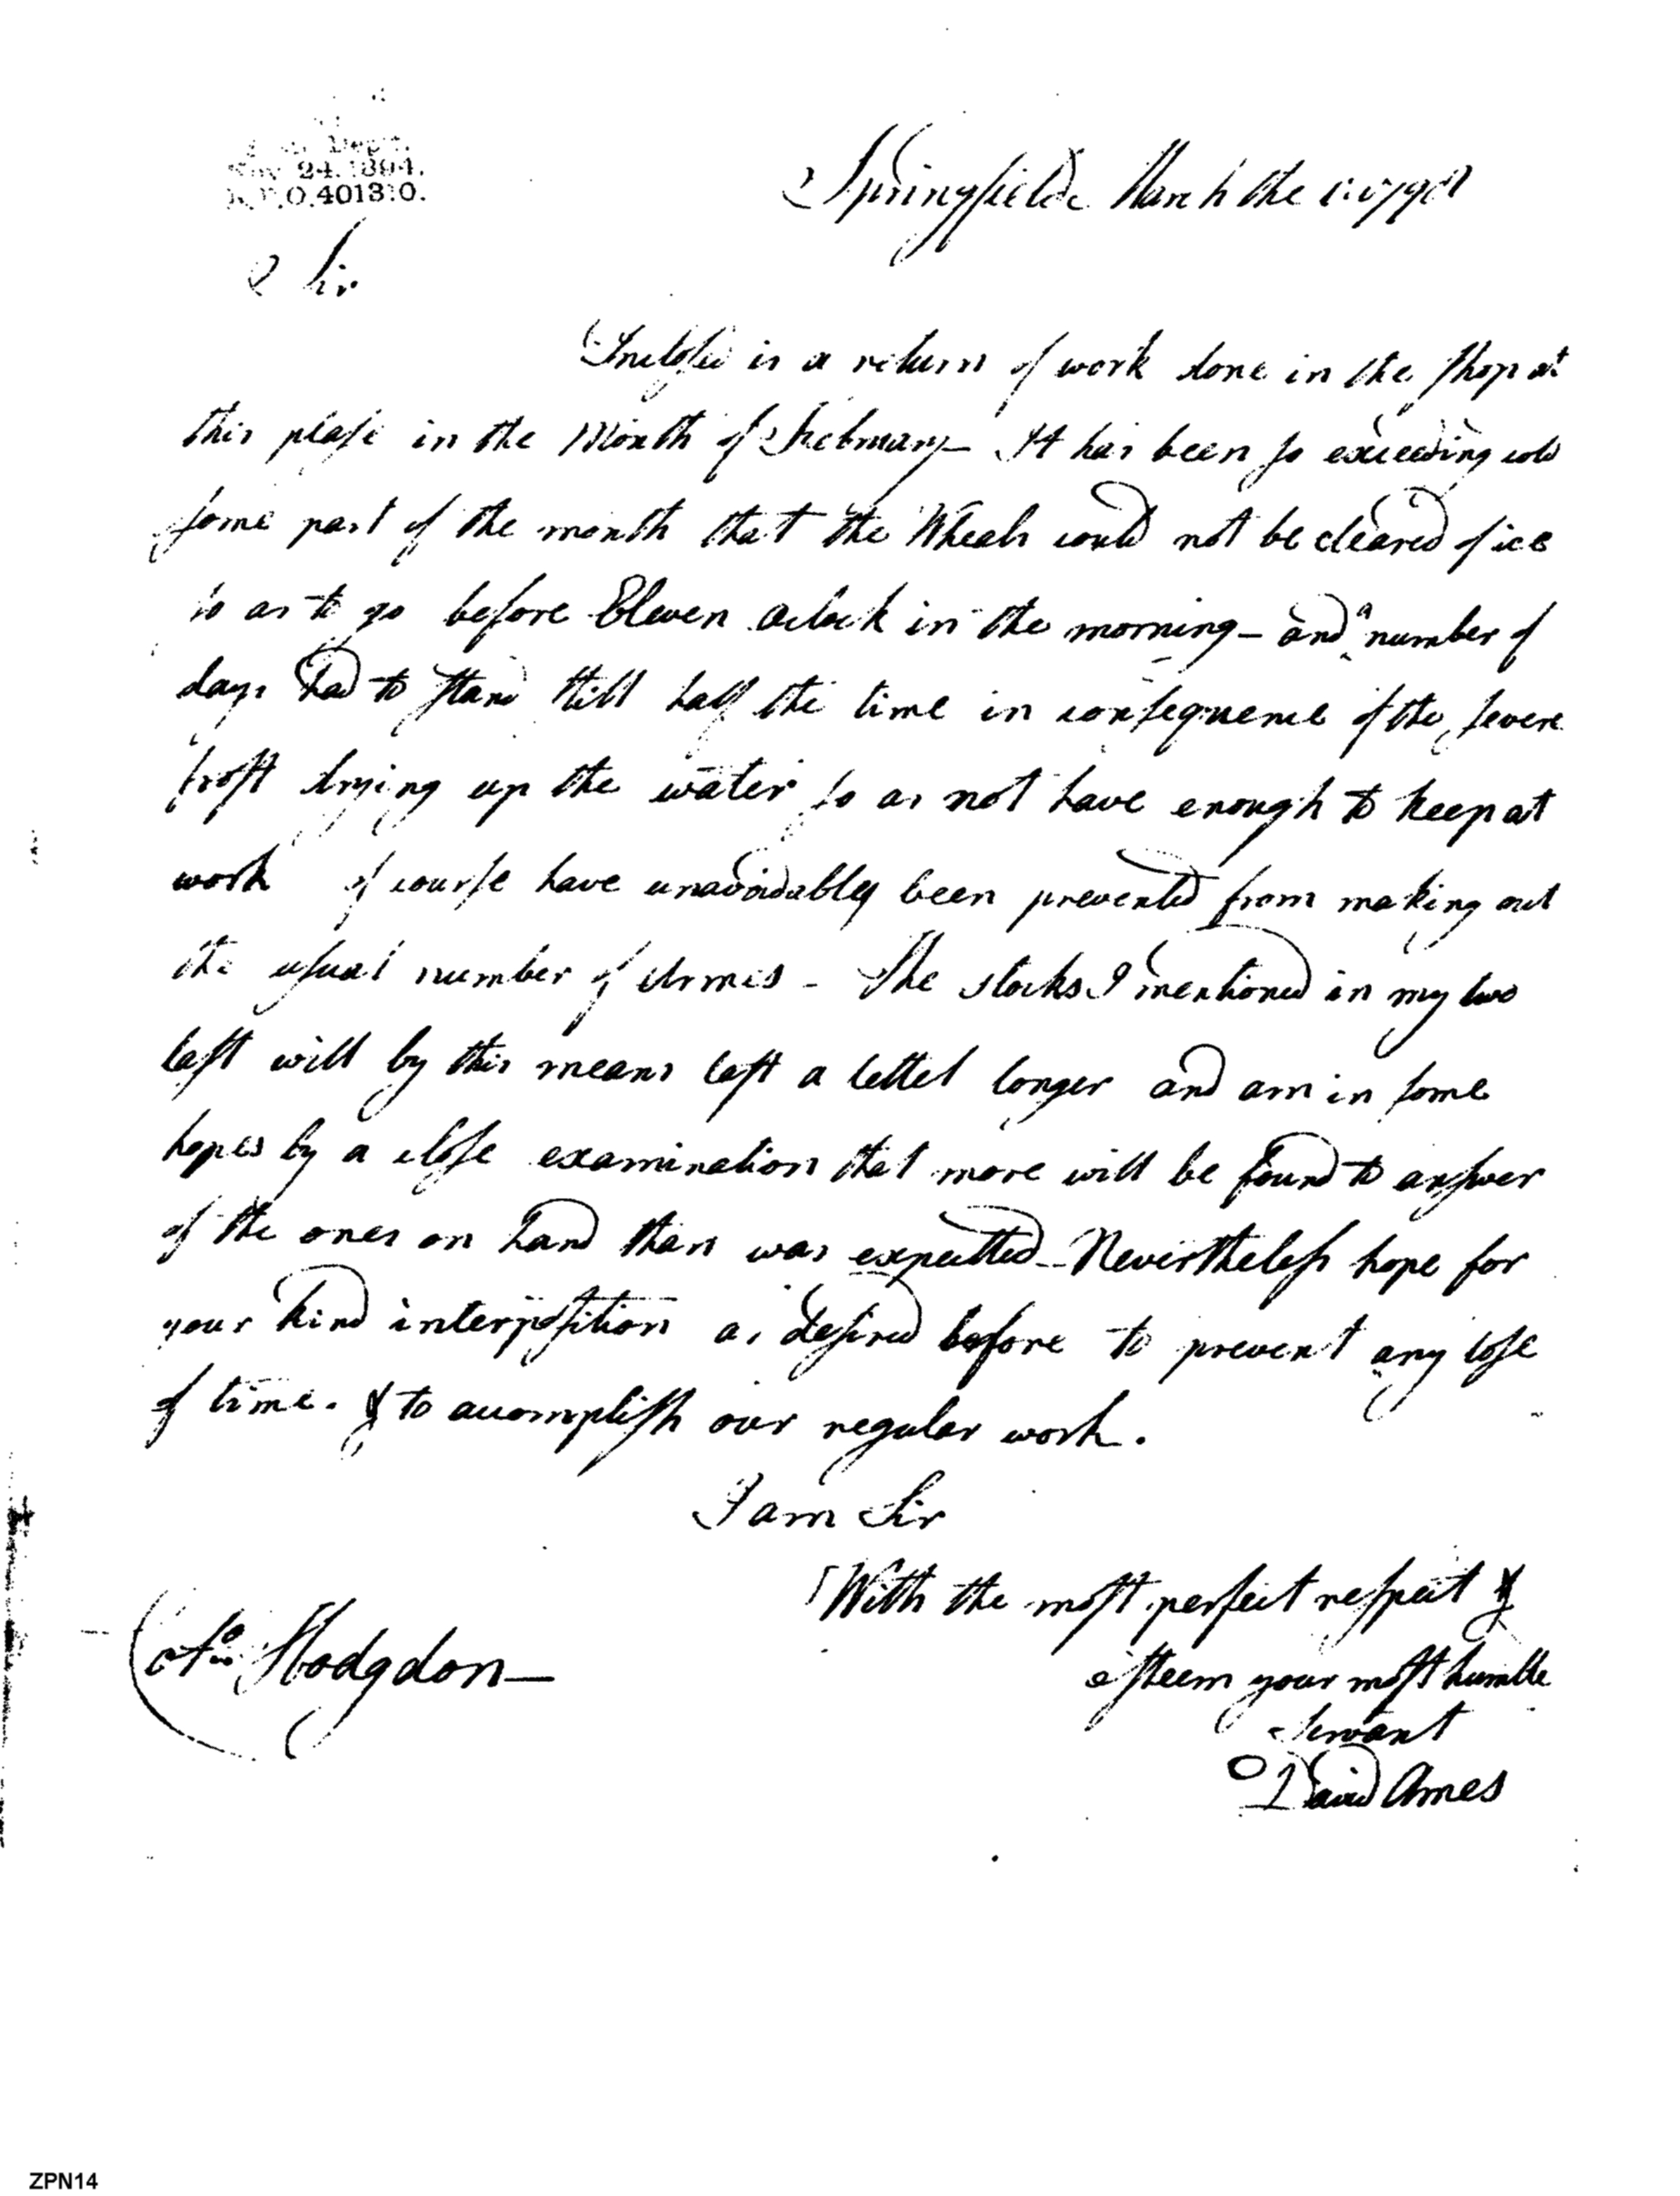 Dept.
Nov 24. 1894.
R.&P.O. 401310.
Springfield March the 1798
Sir
Inclosed is a return of work done in the Shop at
this plase in the Month of Febmary- It has been so exceeding cold
some part of the month that the Wheals could not be cleared of ice
so as to go before Eleven oclock in the morning - and a number of
days had to stand still half the time in consequence of the severe
frost drying up the water so as not have enough to keep at
work of course have unavoidably been prevented from making out
the usual number of Armes - The stocks I mentioned in my two
last will by this means last a lettel longer and am in some
hopes by a close examination that more will be found to answer
of the ones on hand than was expected - Nevertheless hope for
your kind interposition as desired before to prevent any lose
of time. & to accomplish our regular work.
I am Sir
With the most perfect respect &
esteem your most humble
Servant
David Ames
Hodgdon—
ZPN14